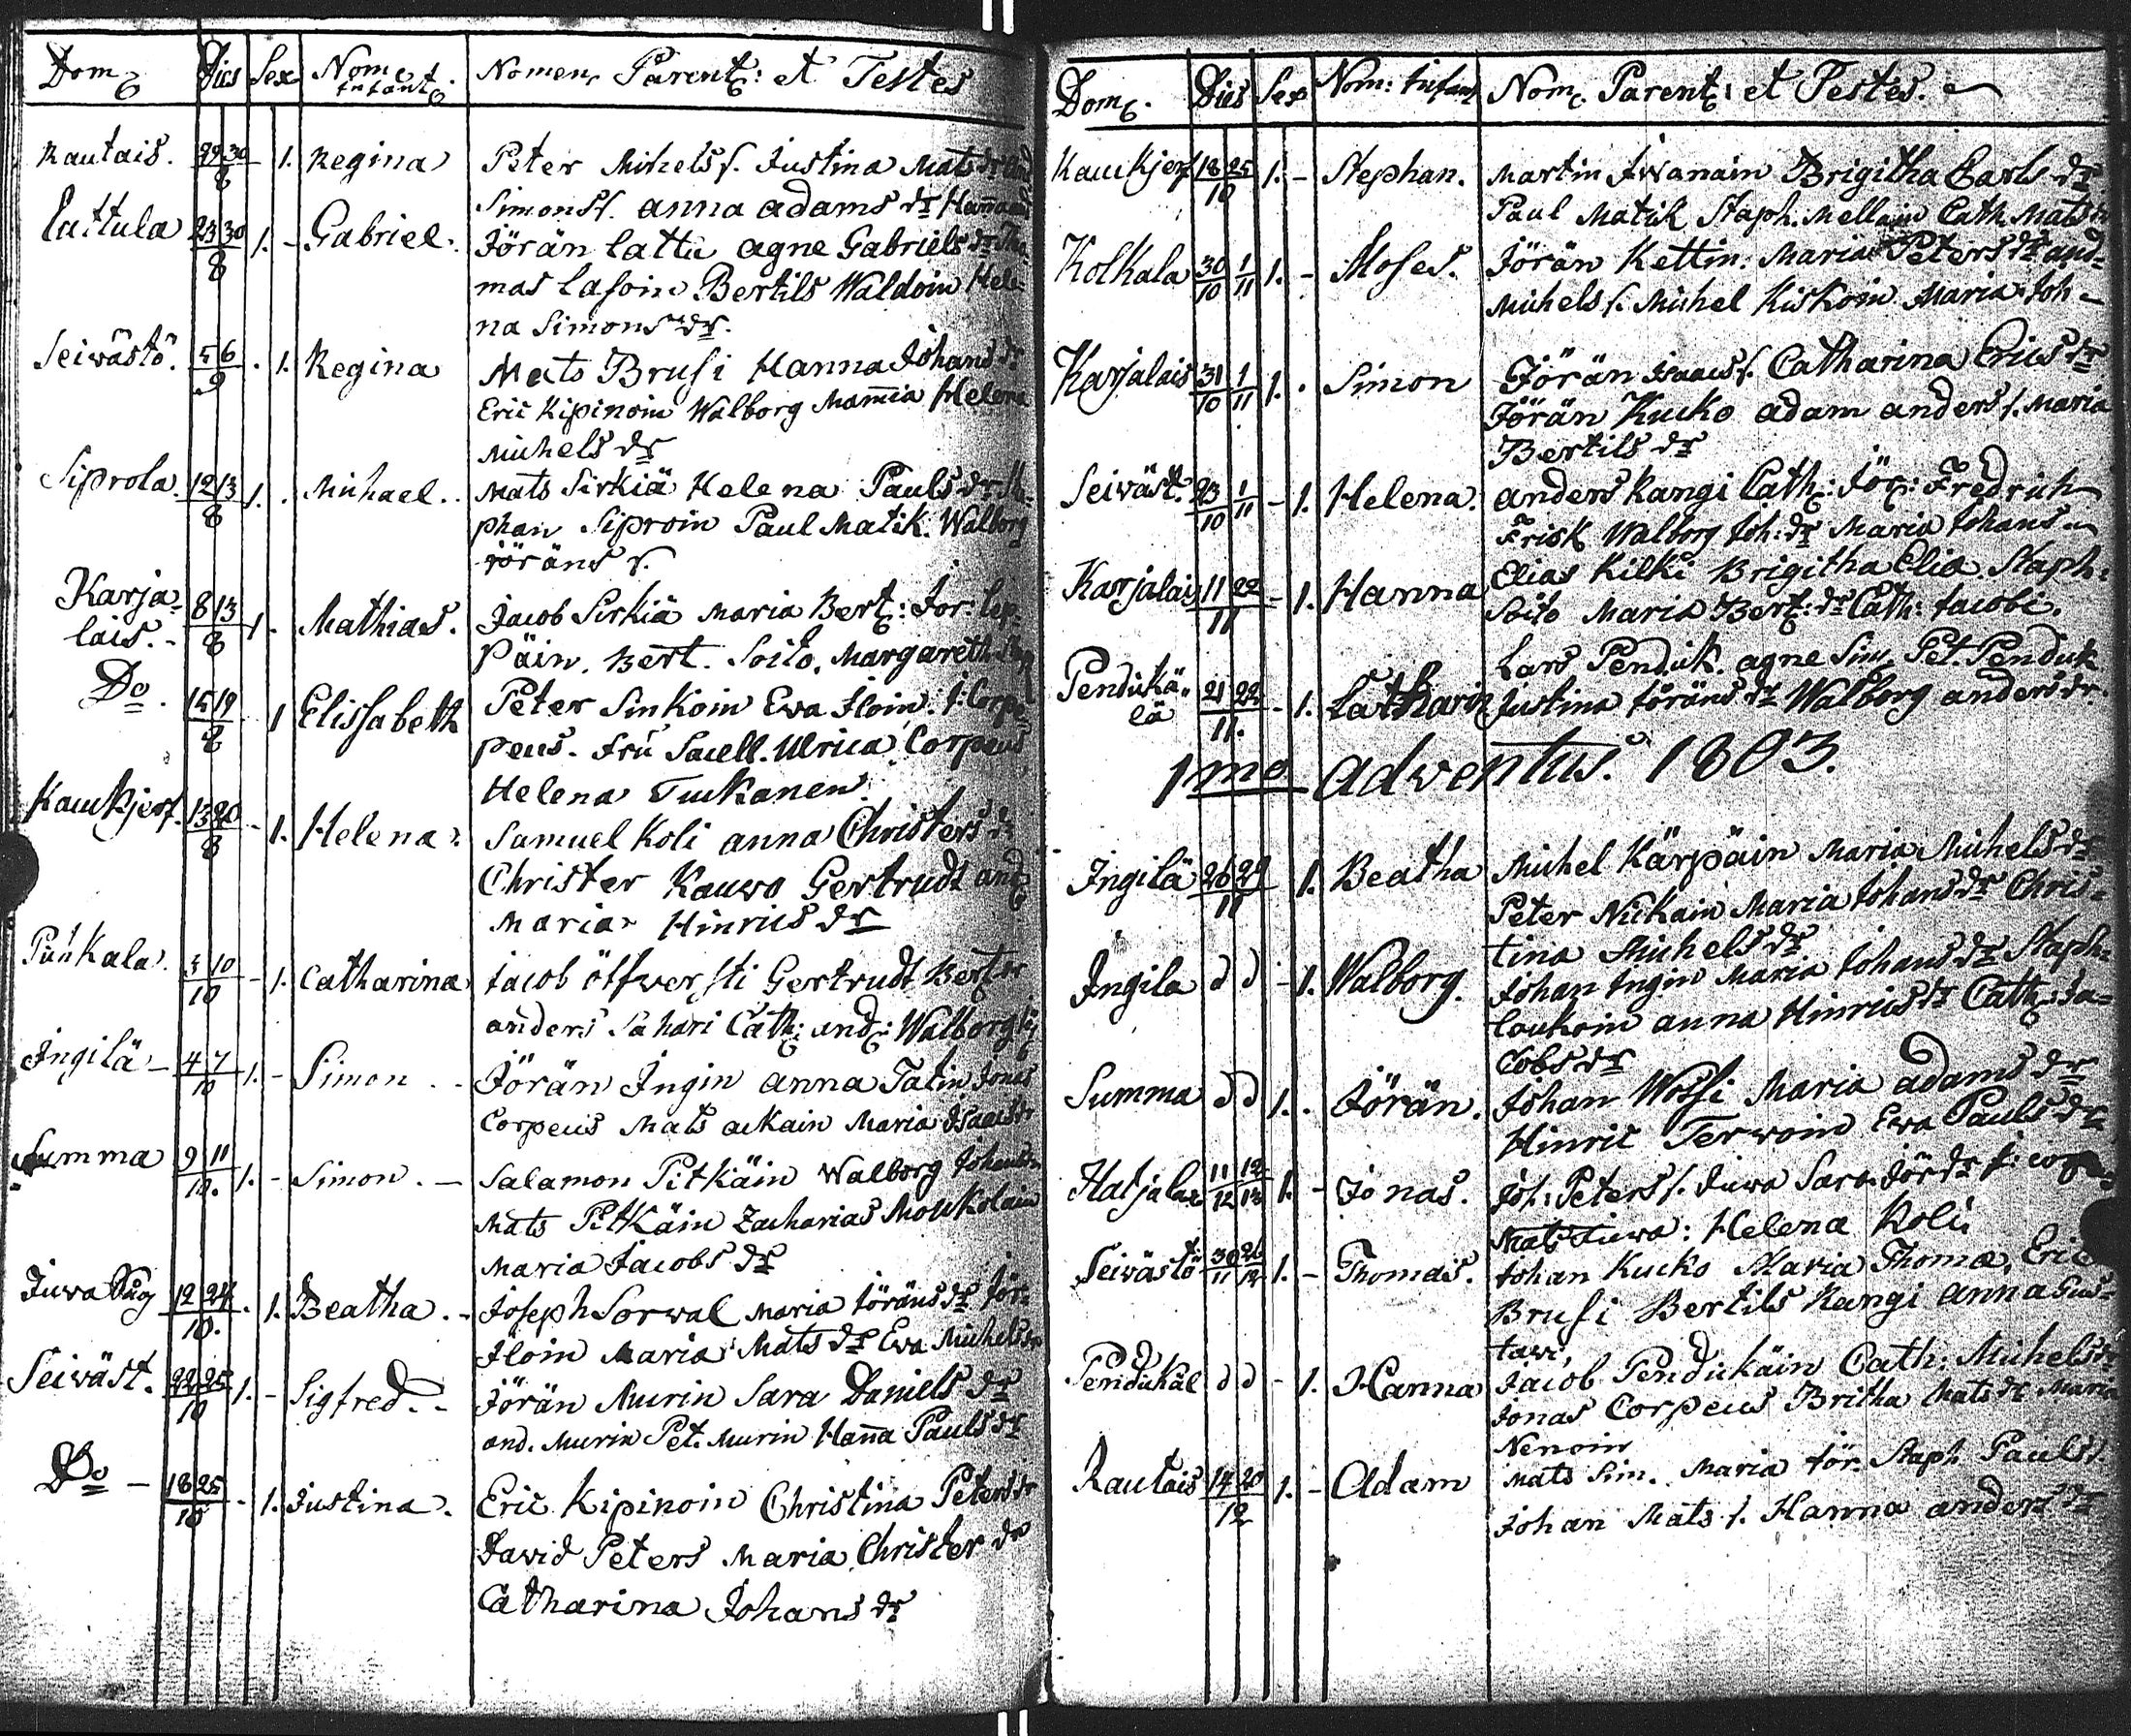 Dom. Dies Sex Nom. Infant. Nomen Parent: et Testes
Rautais. 29 30 / 8 1. Regina Peter Michels s. Justina Mats dr
Simons s. anna adams dr Hanna
Lattula 23 30 / 8 1. - Gabriel. Jörän Lattu agne Gabriels dr Tho-
mas Lasoin Bertils Waldoin Hele-
na Simons dr.
Seiwästö. 5 6 / 9 . 1. Regina Mats Brusi Hanna Johans dr
Eric Kipinoin Walborg Mamia Helena
Michels dr
Siprola. 12 13 / 8 1. . Michael. Mats Sirkiä Helena Pauls dr Sta-
phan Siproin Paul Matik. Walborg
Jöräns s.
Karja- 8 13 / 8 1. Mathias. Jacob Sirkiä Maria Bert: Jör: Lep-
lais. - Päin. Bert. Soito. Margareth
Do. 15 19 / 8 1 Elissabeth Peter Sinkoin Ewa Iloin: J: Corpe
peus. Fru Sacell. Ulrica Corpeus
Helena Tuukanen
Kaukjerf. 13 20 / 8 - 1. Helena. Samuel Koli anna Christers dr
Christer Kauwo Gertrudt and
Maria Hinrics dr
Punkala. 5 10 / 10 - 1. Catharina Jacob öffwersti Gertrudt Bert dr
anders Sahari Cath: and: Walborg
Ingilä - 4 7 / 10 1. - Simon. - Jörän Ingin anna Tatin Jonas
Corpeus Mats aukain Maria Isaacs dr
Summa 9 11 / 10. 1. - Simon. - Salamon Pitkäin Walborg Johans
Mats Pitkäin Zacharias Moukolain
Maria Jacobs dr
Juwa 12 24 / 10. . 1. Beatha. - Joseph Sorwal Maria Jöräns dr Jör:
Iloin Maria Mats dr Ewa Michels dr
Seiwäst. 22 25 / 10 1. - Sigfred. - Jörän Murin Sara Daniels dr
and. Murin Pet. Murin Hanna Pauls dr
Do - 18 25 / 10 - 1. Justina. Eric Kipinoin Christina Peters dr
David Peters Maria Christer dr
Catharina Johans dr
Dom. Dies Sex Nom: Infant Nom. Parent: et Testes.
Kaukjerf 18 25 / 10 1. - Stephan. Martin Iwanain Brigitha Carls dr
Paul Matik Staph. Mellain Cath Mats dr
Kolkala 30 / 10 1 / 11 1. - Moses. Jörän Kettin: Maria Peters dr and=
Michels s. Michel Kiskoin Maria Joh -
Karjalais 31 / 10 1 / 11 1. . Simon Jörän Isaacs s. Catharina Erics dr
Jörän Kuko adam anders s. Maria
Bertils dr
Seiwäst. 23 / 10 1 / 11 - 1. Helena. anders Kangi Cath: Jör: Fredrich
Frisk Walborg Joh: dr Maria Johans
Karjalais 11 22 / 11 - 1. Hanna Elias Kilki Brigitha Elia. Staph:
Soito Maria Bert: dr Cath: Jacobi.
Pendikä- 21 22 / 11. - 1. Catharin Lars Pendik. agne Sim. Pet. Pendik
lä Justina Jöräns dr Walborg anders dr.
1mo adventus. 1803.
Ingilä 26 29 / 11 1. Beatha Michel Kärpäin Maria Michels dr
Peter Nikain Maria Johans dr Chris-
tina Michels dr
Ingila d d - 1. Walborg. Johan Ingin Maria Johans dr Staph:
Loukoin anna Hinrics dr Cath: Ja-
cobs dr
Summa d d 1. . Jörän. Johan Wossi Maria adams dr
Hinric Terwoin Ewa Pauls dr
Hatjala 11 / 12 1. - Jonas. Joh: Peters s. Juwa Sara Jör dr J: corpe
Mats Juwa: Helena Koli
Seiwästö 30 / 11 26 / 12 1. - Thomas. Johan Kucko Maria Thoma. Eric
Brusi Bertils Kangi anna Gus-
tavi,
Pendikäl d d - 1. Hanna Jacob Pendikäin Cath: Michels dr
Jonas Corpeus Britha Mats dr Maria
Nenoin
Rautais 14 20 / 12 1. - Adam Mats Sim. Maria Jör. Staph Pauls s.
Johan Mats s. Hanna anders dr